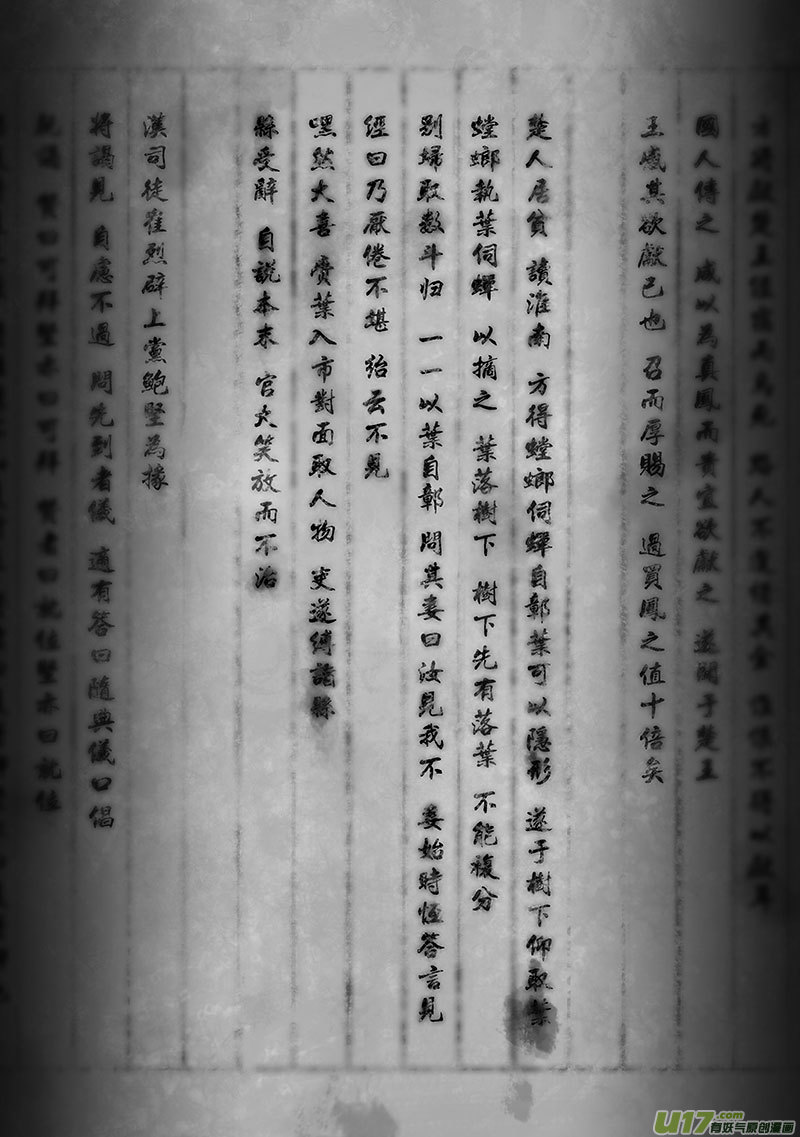 方將獻楚王 路人不 惟恨不得以獻耳
國人傳之 咸以為真鳳而貴宜欲獻之 遂聞于楚王
王感其欲獻己也 召而厚賜之 過買鳳之值十倍矣
楚人居貧 讀淮南 方得螳螂伺蟬自鄣葉可以隱形 遂于樹下仰取葉
螳螂執葉伺蟬 以摘之 葉落樹下 樹下先有落葉 不能複分
别掃取数斗归 一一以葉自鄣 問其妻曰汝見我不 妻始時恆答言見
經日乃厭倦不堪 紿云不見
嘿然大喜 賫葉入市對面取人物 吏遂縛詣縣
縣受辭 自說本末 官大笑放而不治
漢司徒崔烈辟上黨鮑堅為掾
將謁見 自慮不過 問先到者儀 適有答曰隨典儀口倡
既謁 贊曰可拜堅亦曰可拜 贊者曰就位堅亦曰就位
U17.com
有妖气原创漫画